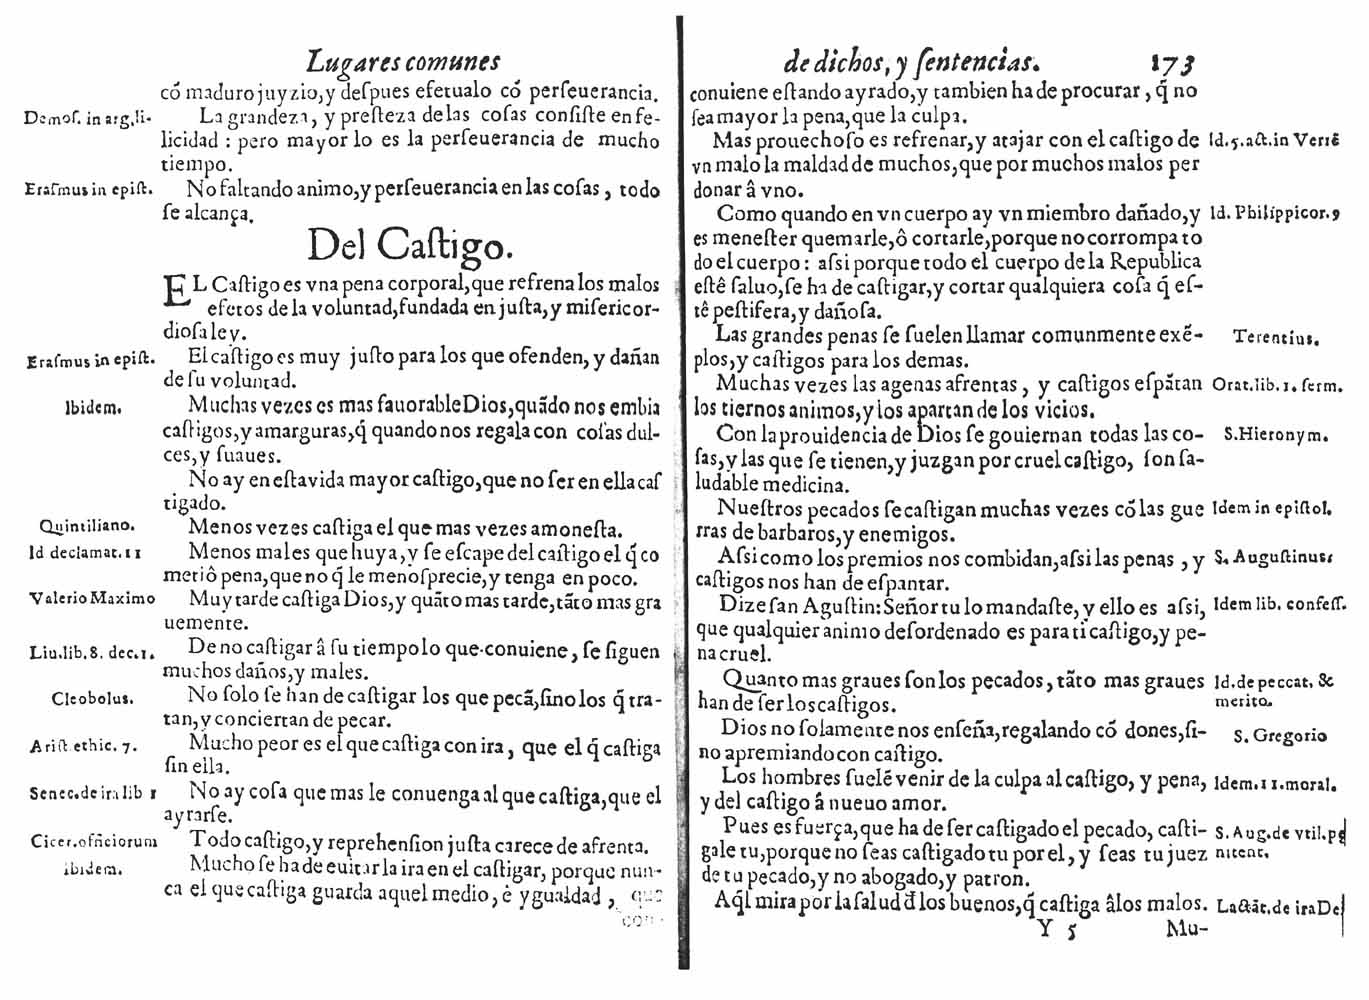 Lugares comunes
có maduro juyzio, y deſpues efetualo có perſeuerancia.
Demoſ. in arg. li. La grandeza, y preſteza de las coſas conſiſte en fe-
licidad : pero mayor lo es la perſeuerancia de mucho
tiempo.
Eraſmus in epiſt. No faltando animo, y perſeuerancia en las coſas, todo
ſe alcança.
Del Caſtigo.
EL Caſtigo es vna pena corporal, que refrena los malos
efetos de la voluntad, fundada en juſta, y miſericor-
dioſa ley.
Eraſmus in epiſt. El caſtigo es muy juſto para los que ofenden, y dañan
de ſu voluntad.
Ibidem. Muchas vezes es mas fauorable Dios, quãdo nos embia
caſtigos, y amarguras, q̃ quando nos regala con coſas dul-
ces, y ſuaues.
No ay en eſta vida mayor caſtigo, que no ſer en ella caſ
tigado.
Quintiliano. Menos vezes caſtiga el que mas vezes amoneſta.
Id declamat. 11 Menos mal es que huya, y ſe eſcape del caſtigo el q̃ co
metiô pena, que no q̃ le menoſprecie, y tenga en poco.
Valerio Maximo Muy tarde caſtiga Dios, y quãto mas tarde, tãto mas gra
uemente.
Liu. lib. 8. dec. 1. De no caſtigar â ſu tiempo lo que conuiene, ſe ſiguen
muchos daños, y males.
Cleobolus. No ſolo ſe han de caſtigar los que pecã, ſino los q̃ tra-
tan, y conciertan de pecar.
Ariſt. ethic. 7. Mucho peor es el que caſtiga con ira, que el q̃ caſtiga
ſin ella.
Senec. de ira lib 1 No ay coſa que mas le conuenga al que caſtiga, que el
ayrarſe.
Cicer. officiorum Todo caſtigo, y reprehenſion juſta carece de afrenta.
ibidem. Mucho ſe ha de euitar la ira en el caſtigar, porque nun-
ca el que caſtiga guarda aquel medio, è ygualdad, que
con-
de dichos, y ſentencias. 173
conuiene eſtando ayrado, y tambien ha de procurar, q̃ no
ſea mayor la pena, que la culpa.
Mas prouechoſo es refrenar, y atajar con el caſtigo de Id. 5. act. in Verrẽ
vn malo la maldad de muchos, que por muchos malos per
donar â vno.
Como quando en vn cuerpo ay vn miembro dañado, y Id. Philippicor. 9
es meneſter quemarle, ô cortarle, porque no corrompa to
do el cuerpo : aſsi porque todo el cuerpo de la Republica
eſtê ſaluo, ſe ha de caſtigar, y cortar qualquiera coſa q̃ eſ-
tê peſtifera, y dañoſa.
Las grandes penas ſe ſuelen llamar comunmente exẽ- Terentius.
plos, y caſtigos para los demas.
Muchas vezes las agenas afrentas, y caſtigos eſpãtan Orat. lib. 1. ſerm.
los tiernos animos, y los apartan de los vicios.
Con la prouidencia de Dios ſe gouiernan todas las co- S. Hieronym.
ſas, y las que ſe tienen, y juzgan por cruel caſtigo, ſon ſa-
ludable medicina.
Nueſtros pecados ſe caſtigan muchas vezes có las gue Idem in epiſtol.
rras de barbaros, y enemigos.
Aſsi como los premios nos combidan, aſsi las penas, y S. Auguſtinus:
caſtigos nos han de eſpantar.
Dize ſan Aguſtin: Señor tu lo mandaſte, y ello es aſsi, Idem lib. confeſſ.
que qualquier animo deſordenado es para ti caſtigo, y pe-
na cruel.
Quanto mas graues ſon los pecados, tãto mas graues Id. de peccat. &
han de ſer los caſtigos. merito.
Dios no ſolamente nos enſeña, regalando có dones, ſi- S. Gregorio
no apremiando con caſtigo.
Los hombres ſuelẽ venir de la culpa al caſtigo, y pena, Idem. 11. moral.
y del caſtigo â nueuo amor.
Pues es fuerça, que ha de ſer caſtigado el pecado, caſti- S. Aug. de vtil. pę
gale tu, porque no ſeas caſtigado tu por el, y ſeas tu juez nitent.
de tu pecado, y no abogado, y patron.
Aq̃l mira por la ſalud d̃ los buenos, q̃ caſtiga âlos malos. Lactãt. de ira De
Y 5 Mu-